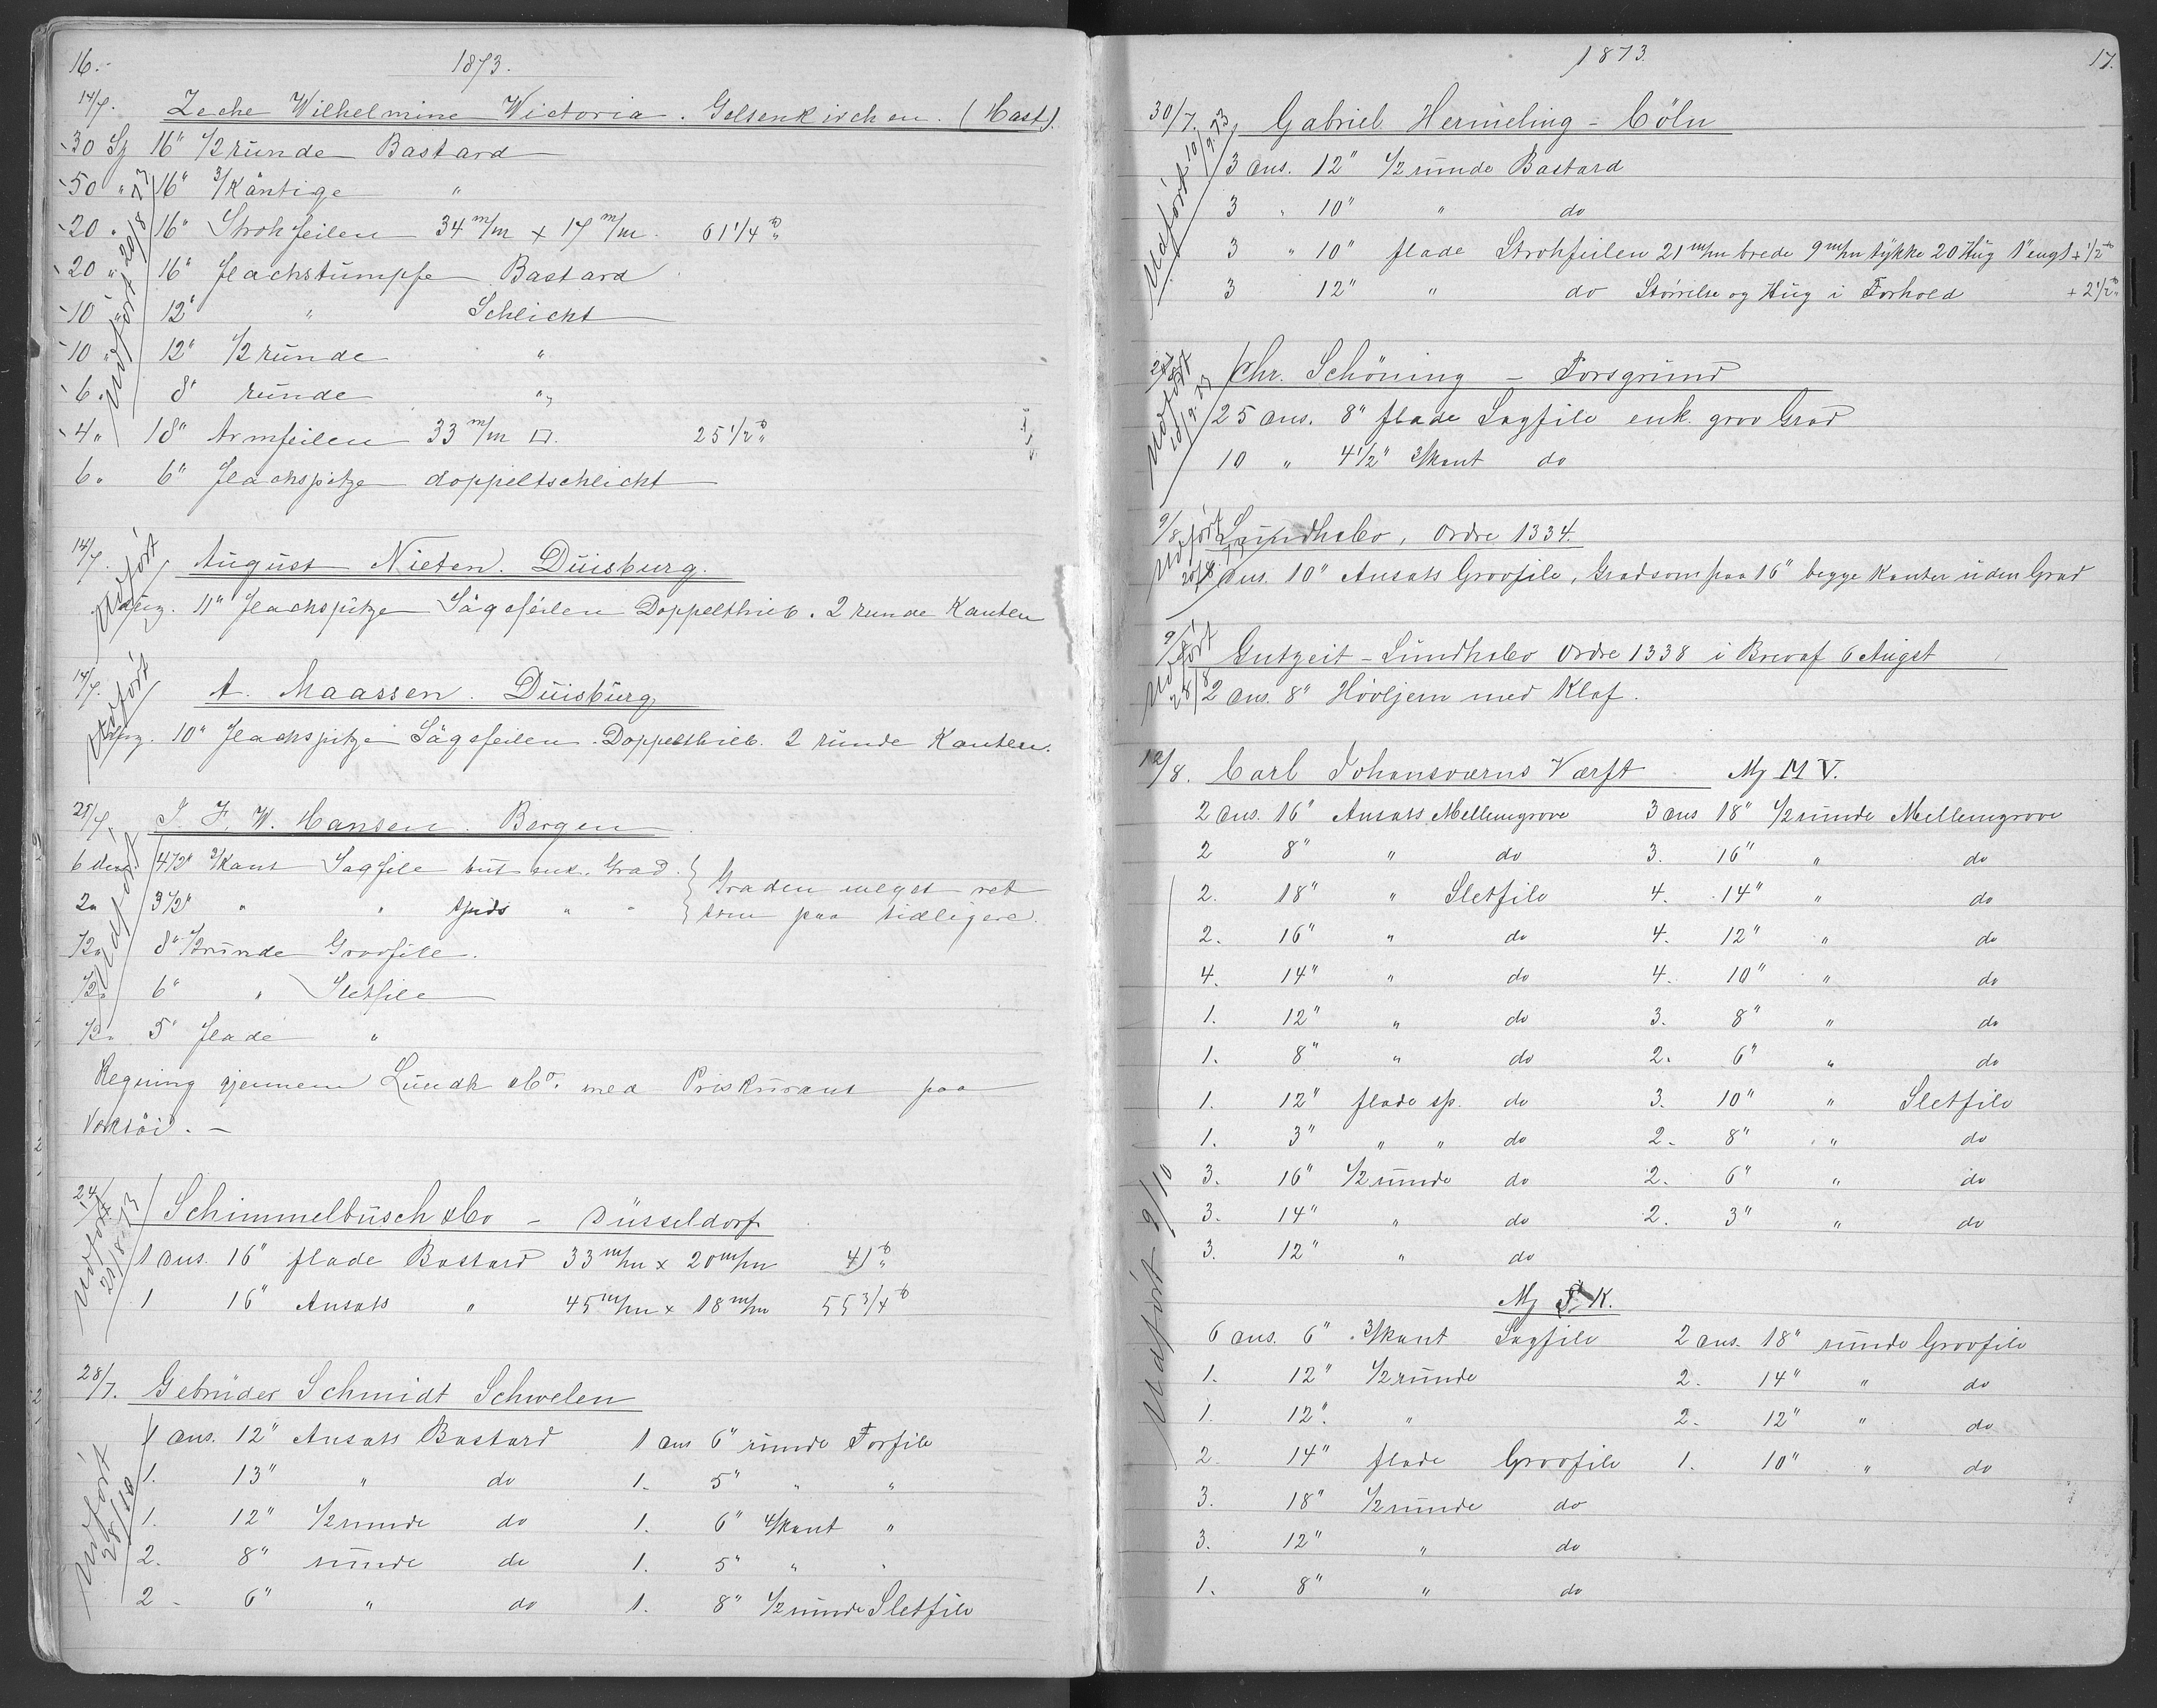 16.
1873.
14/7. Zeche Wilhelmine Wictoria. Gelsenkirchen. (Hast).
30 Stz 16" 1/2 runde Bastard
50 " 16" 3/Käntige "
20 " 16" Strohfeilen 34 m/m x 17 m/m. 61 1/4 ℔
20 " 16" Flachstumpfe Bastard
10 " 12" " Schlicht
10 " 12" 1/2 runde "
6 " 8" runde "
4 " 18" Armfeilen 33 m/m □. 25 1/2 ℔
6 " 6" Flachspitze doppeltschlicht
Udført 20/8 73
14/7. August Nieten. Duisburg.
Udført
11" Flachspitze Sägefeilen Doppelthieb. 2 runde Kanten
14/7. A. Maassen. Duisburg
Udført
10" Flachspitze Sägefeilen. Doppelthieb. 2 runde Kanten.
J. F. W. Hansen. Bergen
6 4 1/2" 3/Kant Sagfile but enk. Grad. } Graden meget ret
2 " 3 1/2" " " spids " " } som paa tidligere.
1/2 " 8" 1/2 runde Grovfile.
1/2 " 6" " Sletfile
1/2 " 5" flade "
Udført
Regning gjennem Lundh & Co. med Priskurant paa
24/7 Schimmelbusch & Co - Düsseldorf
1 dus. 16" flade Bastard 33 m/m x 20 m/m 41 ℔
1 16" Ansats " 45 m/m x 18 m/m 55 3/4 ℔
Udført 21/8 73
28/7. Gebrüder Schmidt Schwelen
1 dus. 12" Ansats Bastard 1 dus 6" runde Forfile
1. 13" " do 1. 5" " "
1. 12" 1/2 runde do 1. 6" 4/kant "
2. 8" runde do 1. 5" " "
2 - 6" " do 1. 8" 1/2 runde Sletfile
Udført 28/10
1873.
17.
30/7. Gabriel Hermeling - Cöln
3 dus. 12" 1/2 runde Bastard
3 " 10" " do
3 " 10" flade Strohfeilen 21 m/m brede 9 m/m tykke 20 Hug 1" engl + 1/2 ℔
3 12" " do Størrelse og Hug i Forhold + 2 1/2 ℔
Udført 10/9. 73
Chr. Schöning - Porsgrund
25 dus. 8" flade Sagfile enk. grov Grad
10 " 4 1/2" 3/kant do
Udført 10/9. 73
9/8 Lundh & Co, Ordre 1334.
dus. 10" Ansats Grovfile, Grad som paa 16" begge Kanter uden Grad
Udført
Gutzeit - Lundh & Co Ordre 1338 i Brev af 6 Augst
2 dus. 8" Høvljern med Klaf.
Udført 28/8
12/8. Carl Johansværns Værft Mj M V.
2 dus. 16" Ansats Mellemgrove 3 dus 18" 1/2 runde Mellemgrove
2 8" " do 3. 16" " do
2. 18" " Sletfile 4. 14" " do
2. 16" " do 4. 12" " do
4. 14" " do 4. 10" " do
1. 12" " do 3. 8" " do
1. 8" " do 2. 6" " do
1. 12" flade sp. do 3. 10" " Sletfile
1. 3" " " do 2. 8" " do
3. 16" 1/2 runde do 2. 6" " do
3. 14" " do 2. 3" " do
3. 12" " do
Mj K.
6 dus. 6" 3/kant Sagfile 2 dus. 18" runde Grovfile
1. 12" 1/2 runde 2. 14" " do
1. 12". " 2. 12" " do
2. 14" flade Grovfile 1. 10" " do
3. 18" 1/2 runde do
3. 12" " do
1. 8" " do
Udført 9/10